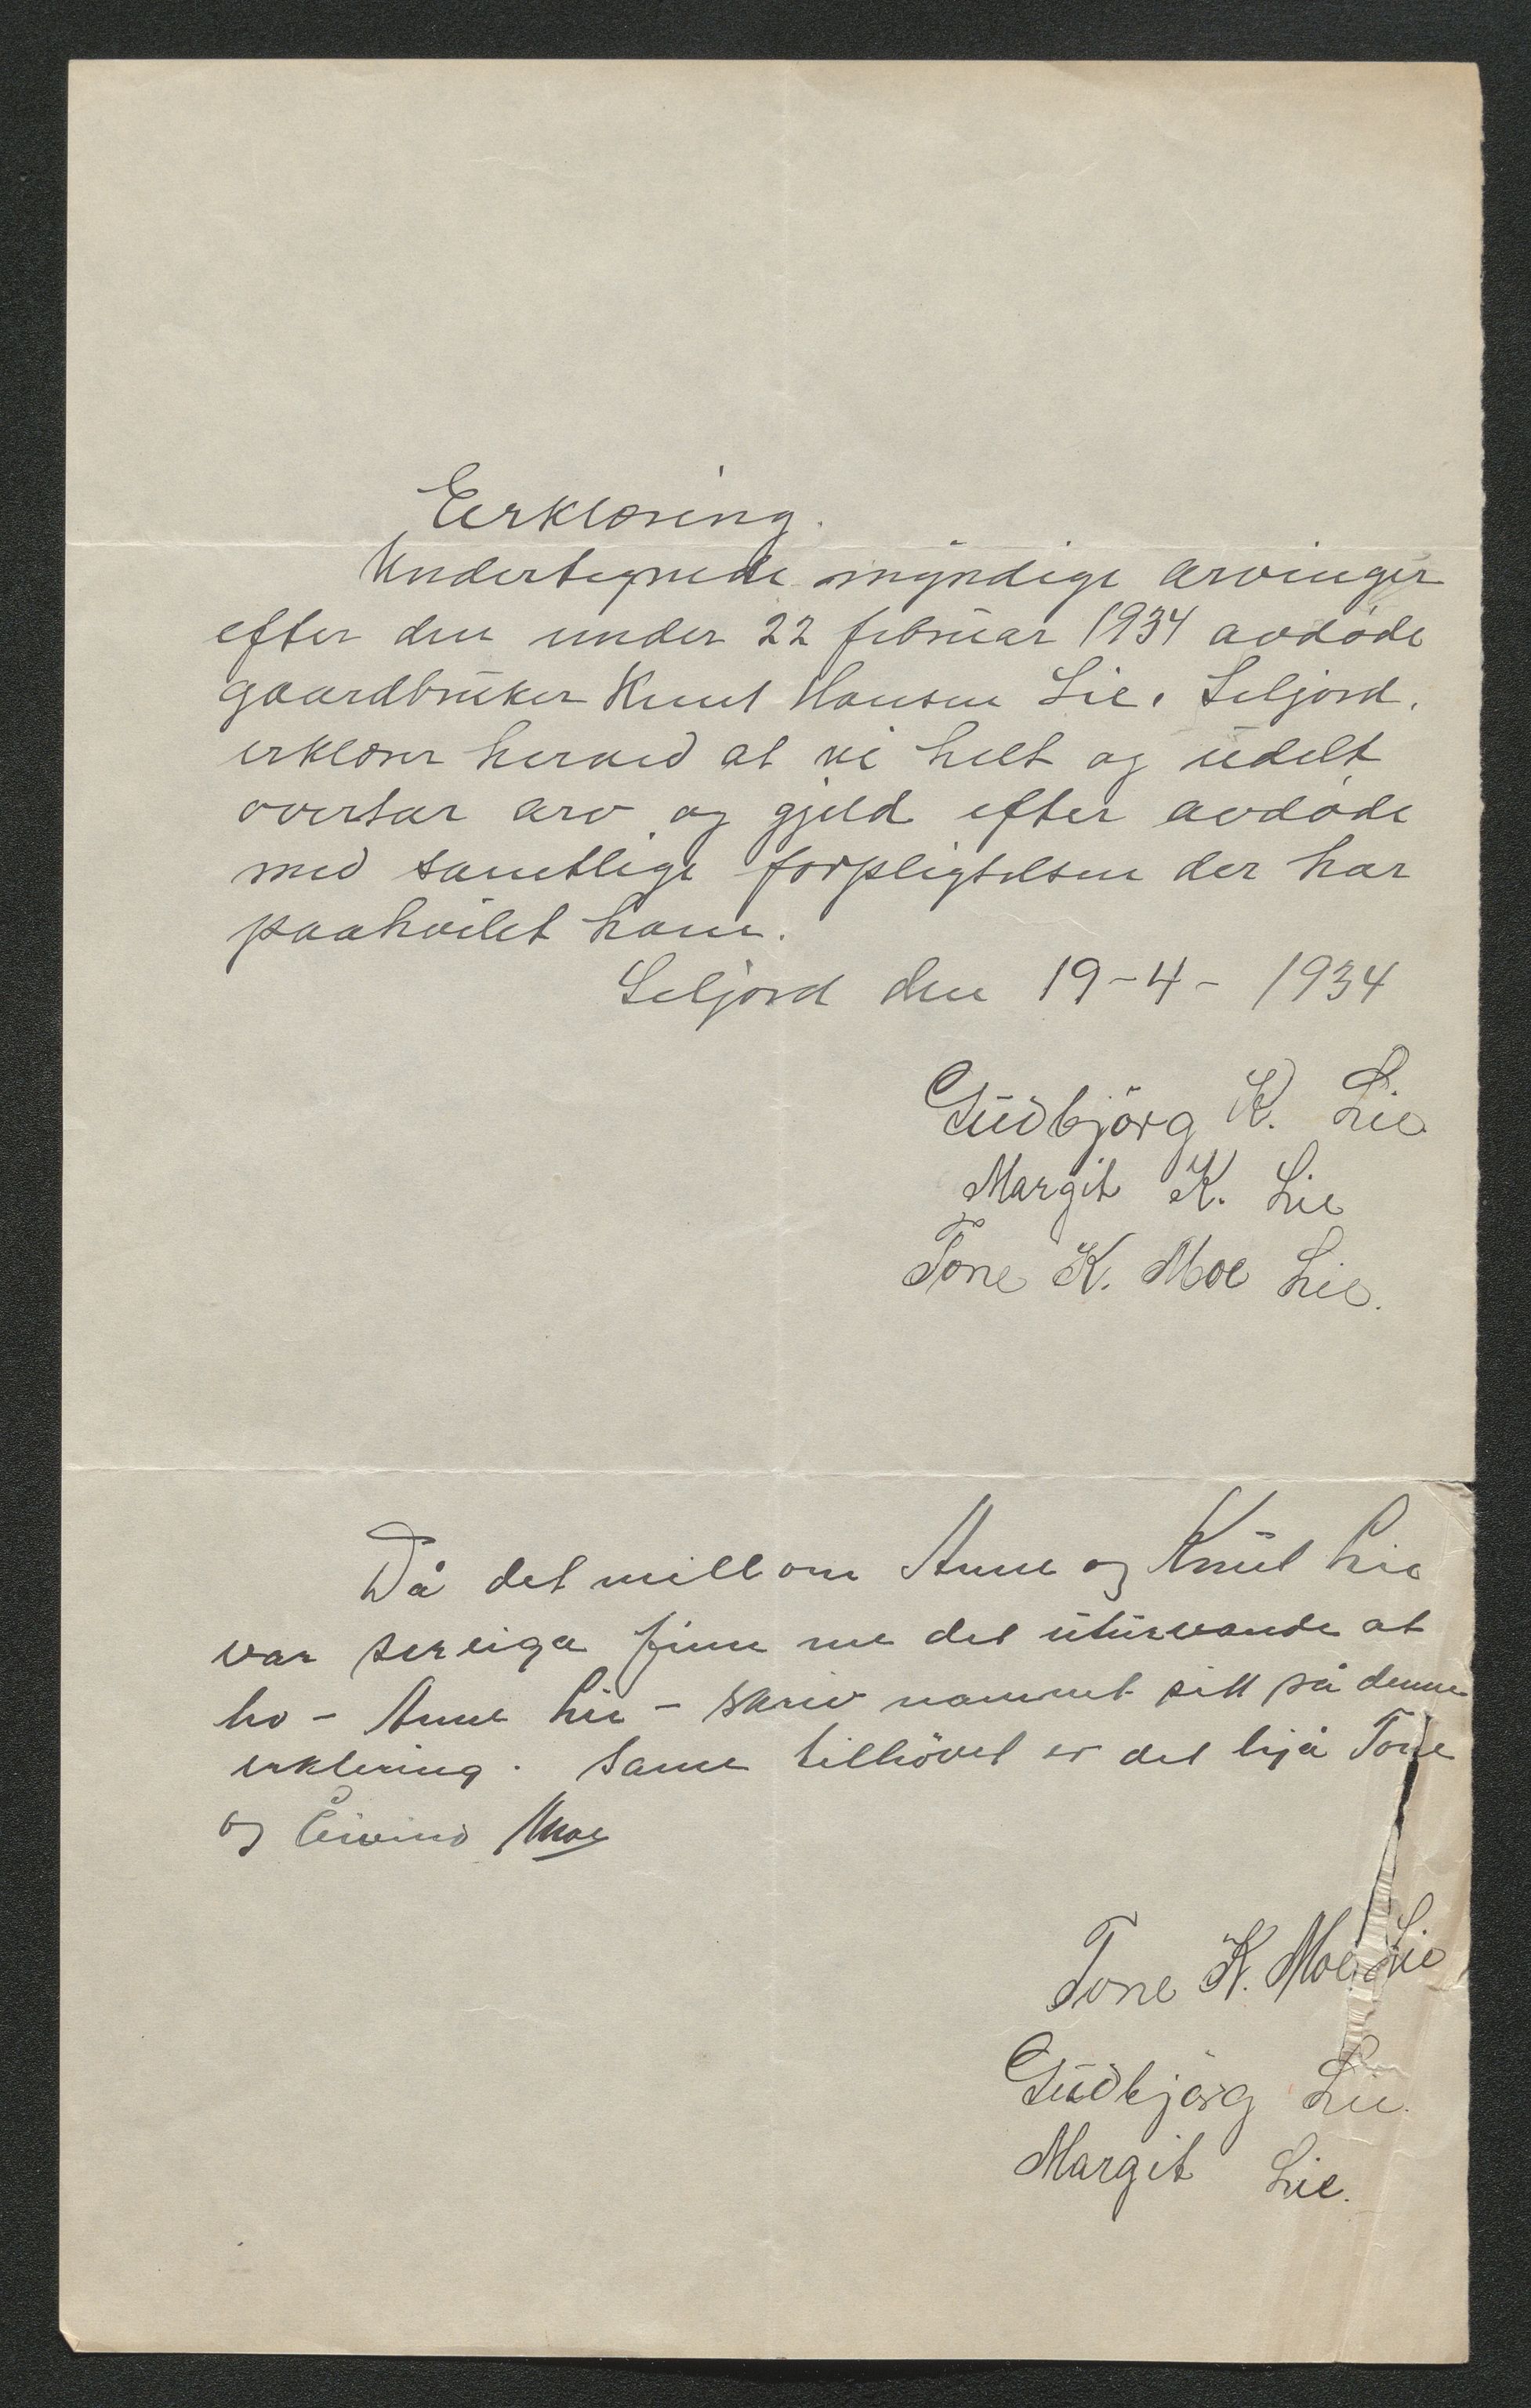 Eerklæring.
Undertegnede myndige arvinger
efter den under 22 februar 1934 avdøde
gaardbruker Knut Hansen Lie, Seljord,
erklærer herved at vi helt og udelt
overtar arv og gjeld efter avdøde
med samtlige forpligtelser der har
paahvilet ham.
Seljord den 19-4- 1934
Gudbjörg K. Lie
Margit K. Lie
Tone K. Moe Lie.
Då det millom Anne og Knut Lie
var sereiga finn me det uturvande at
ho - Anne Lie - skriv namnet sitt på denne
erklering. Same tilhövet er det hjå Tone
og Eivind Moe
Tone K. Moe Lie
Gudbjörg Lie.
Margit Lie.